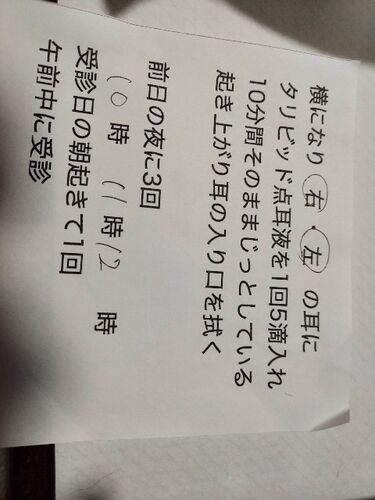 横になり 右・左 の耳に
タリビッド点耳液を1回5滴入れ
10分間そのままじっとしている
起き上がり耳の入り口を拭く
前日の夜に3回
10時 11時 12時
受診日の朝起きて1回
午前中に受診